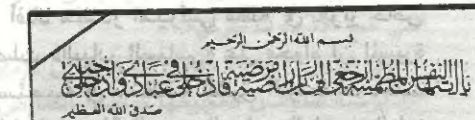 بسم الله الرحمن الرحيم
يا ايتها النفس المطمئنة ارجعي الى ربك راضية مرضية فادخلي في عبادي وادخلي جنتي
صدق الله العظيم